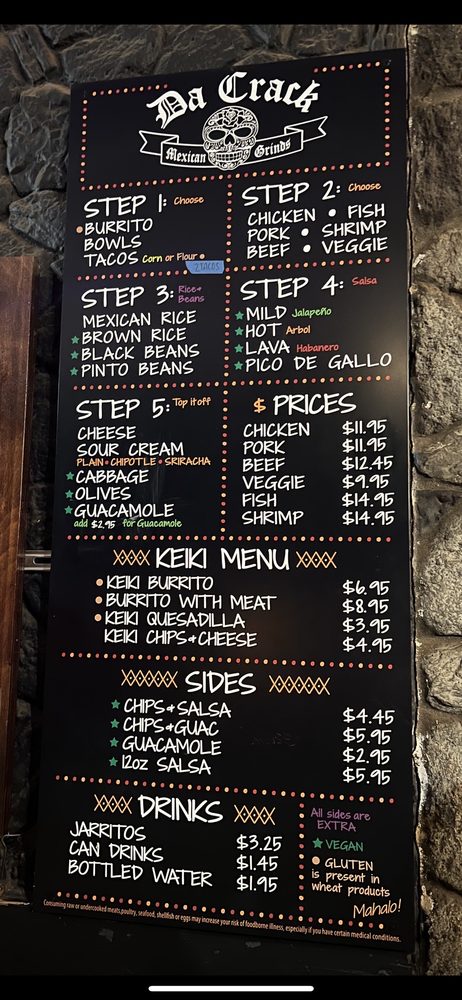 Da Crack
Mexican Grinds
STEP 1: Choose
BURRITO
BOWLS
TACOS Corn or Flour
2 TACOS
STEP 2: Choose
CHICKEN • FISH
PORK • SHRIMP
BEEF • VEGGIE
STEP 3: Rice+
Beans
MEXICAN RICE
BROWN RICE
BLACK BEANS
PINTO BEANS
STEP 4: Salsa
MILD Jalapeño
HOT Arbol
LAVA Habanero
PICO DE GALLO
STEP 5: Top it off
CHEESE
SOUR CREAM
PLAIN • CHIPOTLE • SRIRACHA
CABBAGE
OLIVES
GUACAMOLE
add $2.95 for Guacamole
$ PRICES
CHICKEN $11.95
PORK $11.95
BEEF $12.45
VEGGIE $9.95
FISH $14.95
SHRIMP $14.95
KEIKI MENU
KEIKI BURRITO $6.95
BURRITO WITH MEAT $8.95
KEIKI QUESADILLA $3.95
KEIKI CHIPS+CHEESE $4.95
SIDES
CHIPS+SALSA $4.45
CHIPS+GUAC $5.95
GUACAMOLE $2.95
12oz SALSA $5.95
DRINKS
JARRITOS $3.25
CAN DRINKS $1.45
BOTTLED WATER $1.95
All sides are
EXTRA
VEGAN
GLUTEN
is present in
wheat products
Mahalo!
Consuming raw or undercooked meats, poultry, seafood, shellfish or eggs may increase your risk of foodborne illness, especially if you have certain medical conditions.